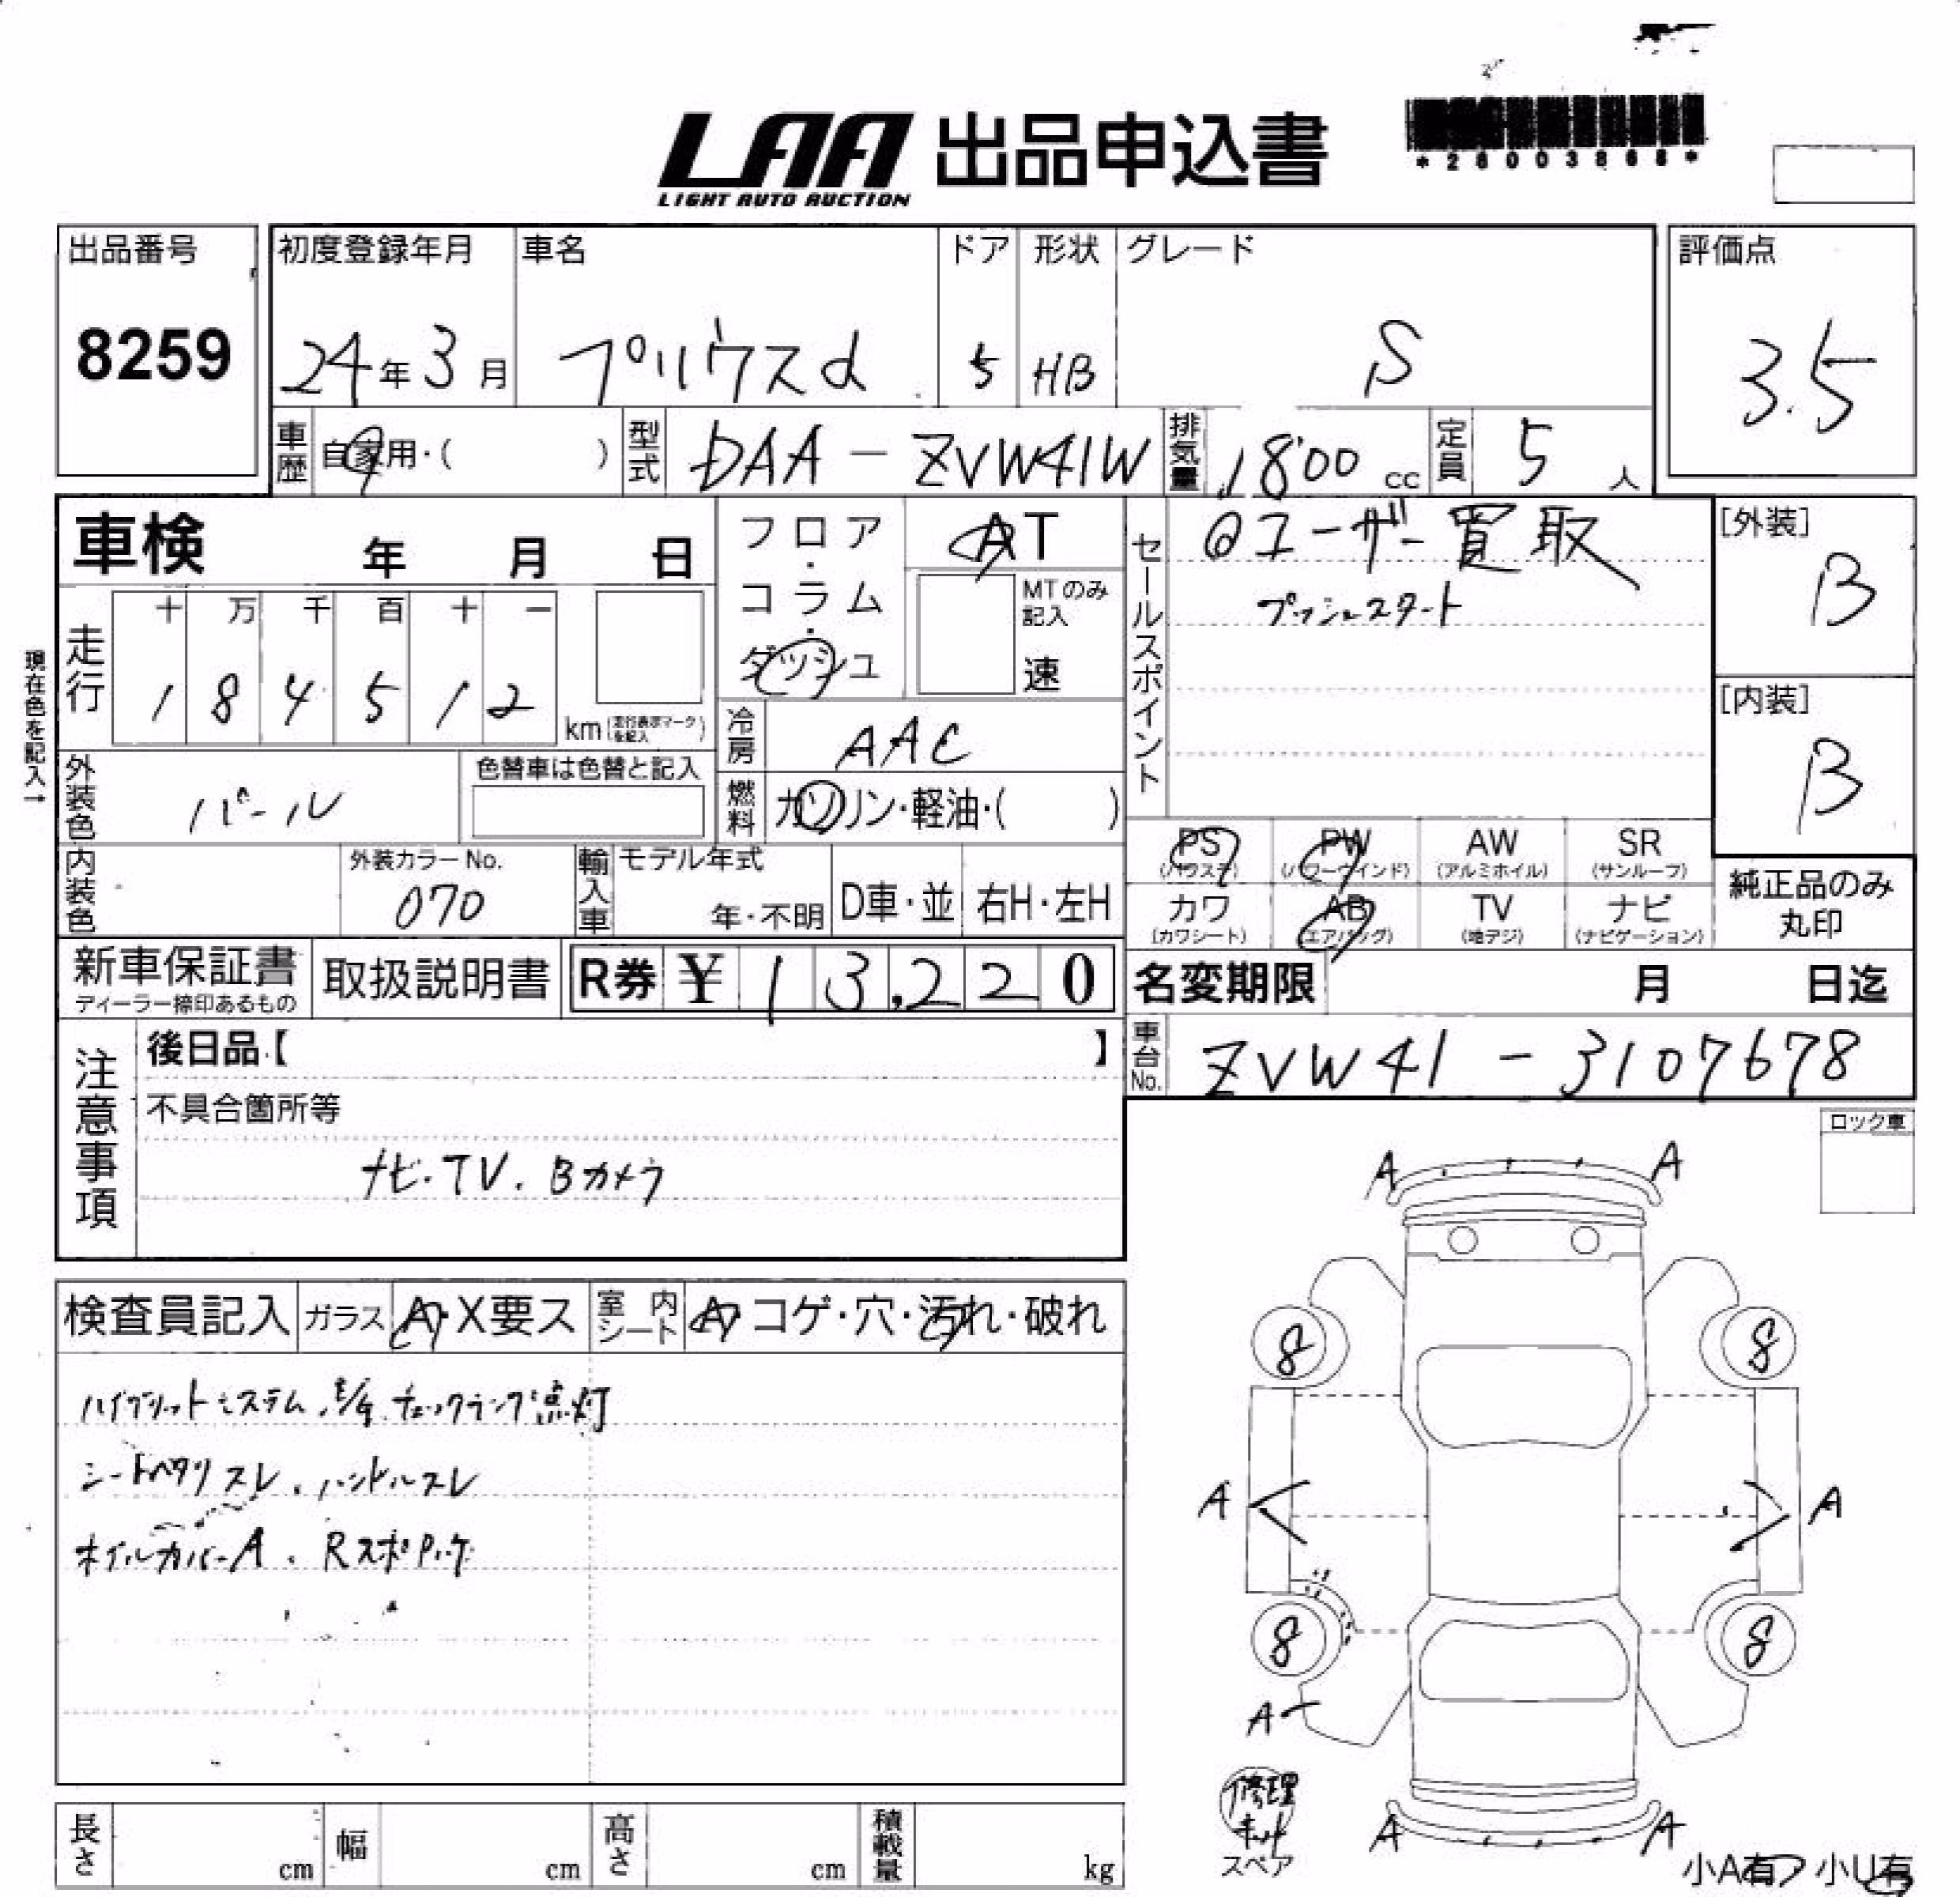 LAA 出品申込書
LIGHT AUTO AUCTION
*28003868*
出品番号
8259
初度登録年月
24年3月
車名
プリウスα
ドア
5
形状
HB
グレード
S
評価点
3.5
車歴
自家用・( )
型式
DAA-ZVW41W
排気量
1800 cc
定員
5 人
車検 年 月 日
フロア・コラム・ダッシュ
AT
MTのみ記入
速
現在色を記入→
走行
十 万 千 百 十 一
1 8 4 5 1 2
km(走行表示マークを記入)
冷房
AAC
燃料
ガソリン・軽油・( )
外装色
パール
色替車は色替と記入
内装色
外装カラーNo.
070
輸入車
モデル年式
年・不明
D車・並
右H・左H
セールスポイント
@ユーザー買取
プッシュスタート
[外装]
B
[内装]
B
PS
(パワステ)
PW
(パワーウインド)
AW
(アルミホイル)
SR
(サンルーフ)
カワ
(カワシート)
AB
(エアバッグ)
TV
(地デジ)
ナビ
(ナビゲーション)
純正品のみ
丸印
新車保証書
ディーラー捺印あるもの
取扱説明書
R券 ¥ 13,220
名変期限 月 日迄
車台No.
ZVW41-3107678
注意事項
後日品【 】
不具合箇所等
ナビ・TV・Bカメラ
ロック車
検査員記入
ガラス
A・X要ス
室内シート
A・コゲ・穴・汚れ・破れ
ハイブリットシステム, チェックランプ点灯
シートヘタリスレ、ハンドルスレ
ホイルカバーA、Rスポ
A A
8 8
A A
8 8
A
A A
修理
キット
スペア
小A有 小U有
長さ cm
幅 cm
高さ cm
積載量 kg